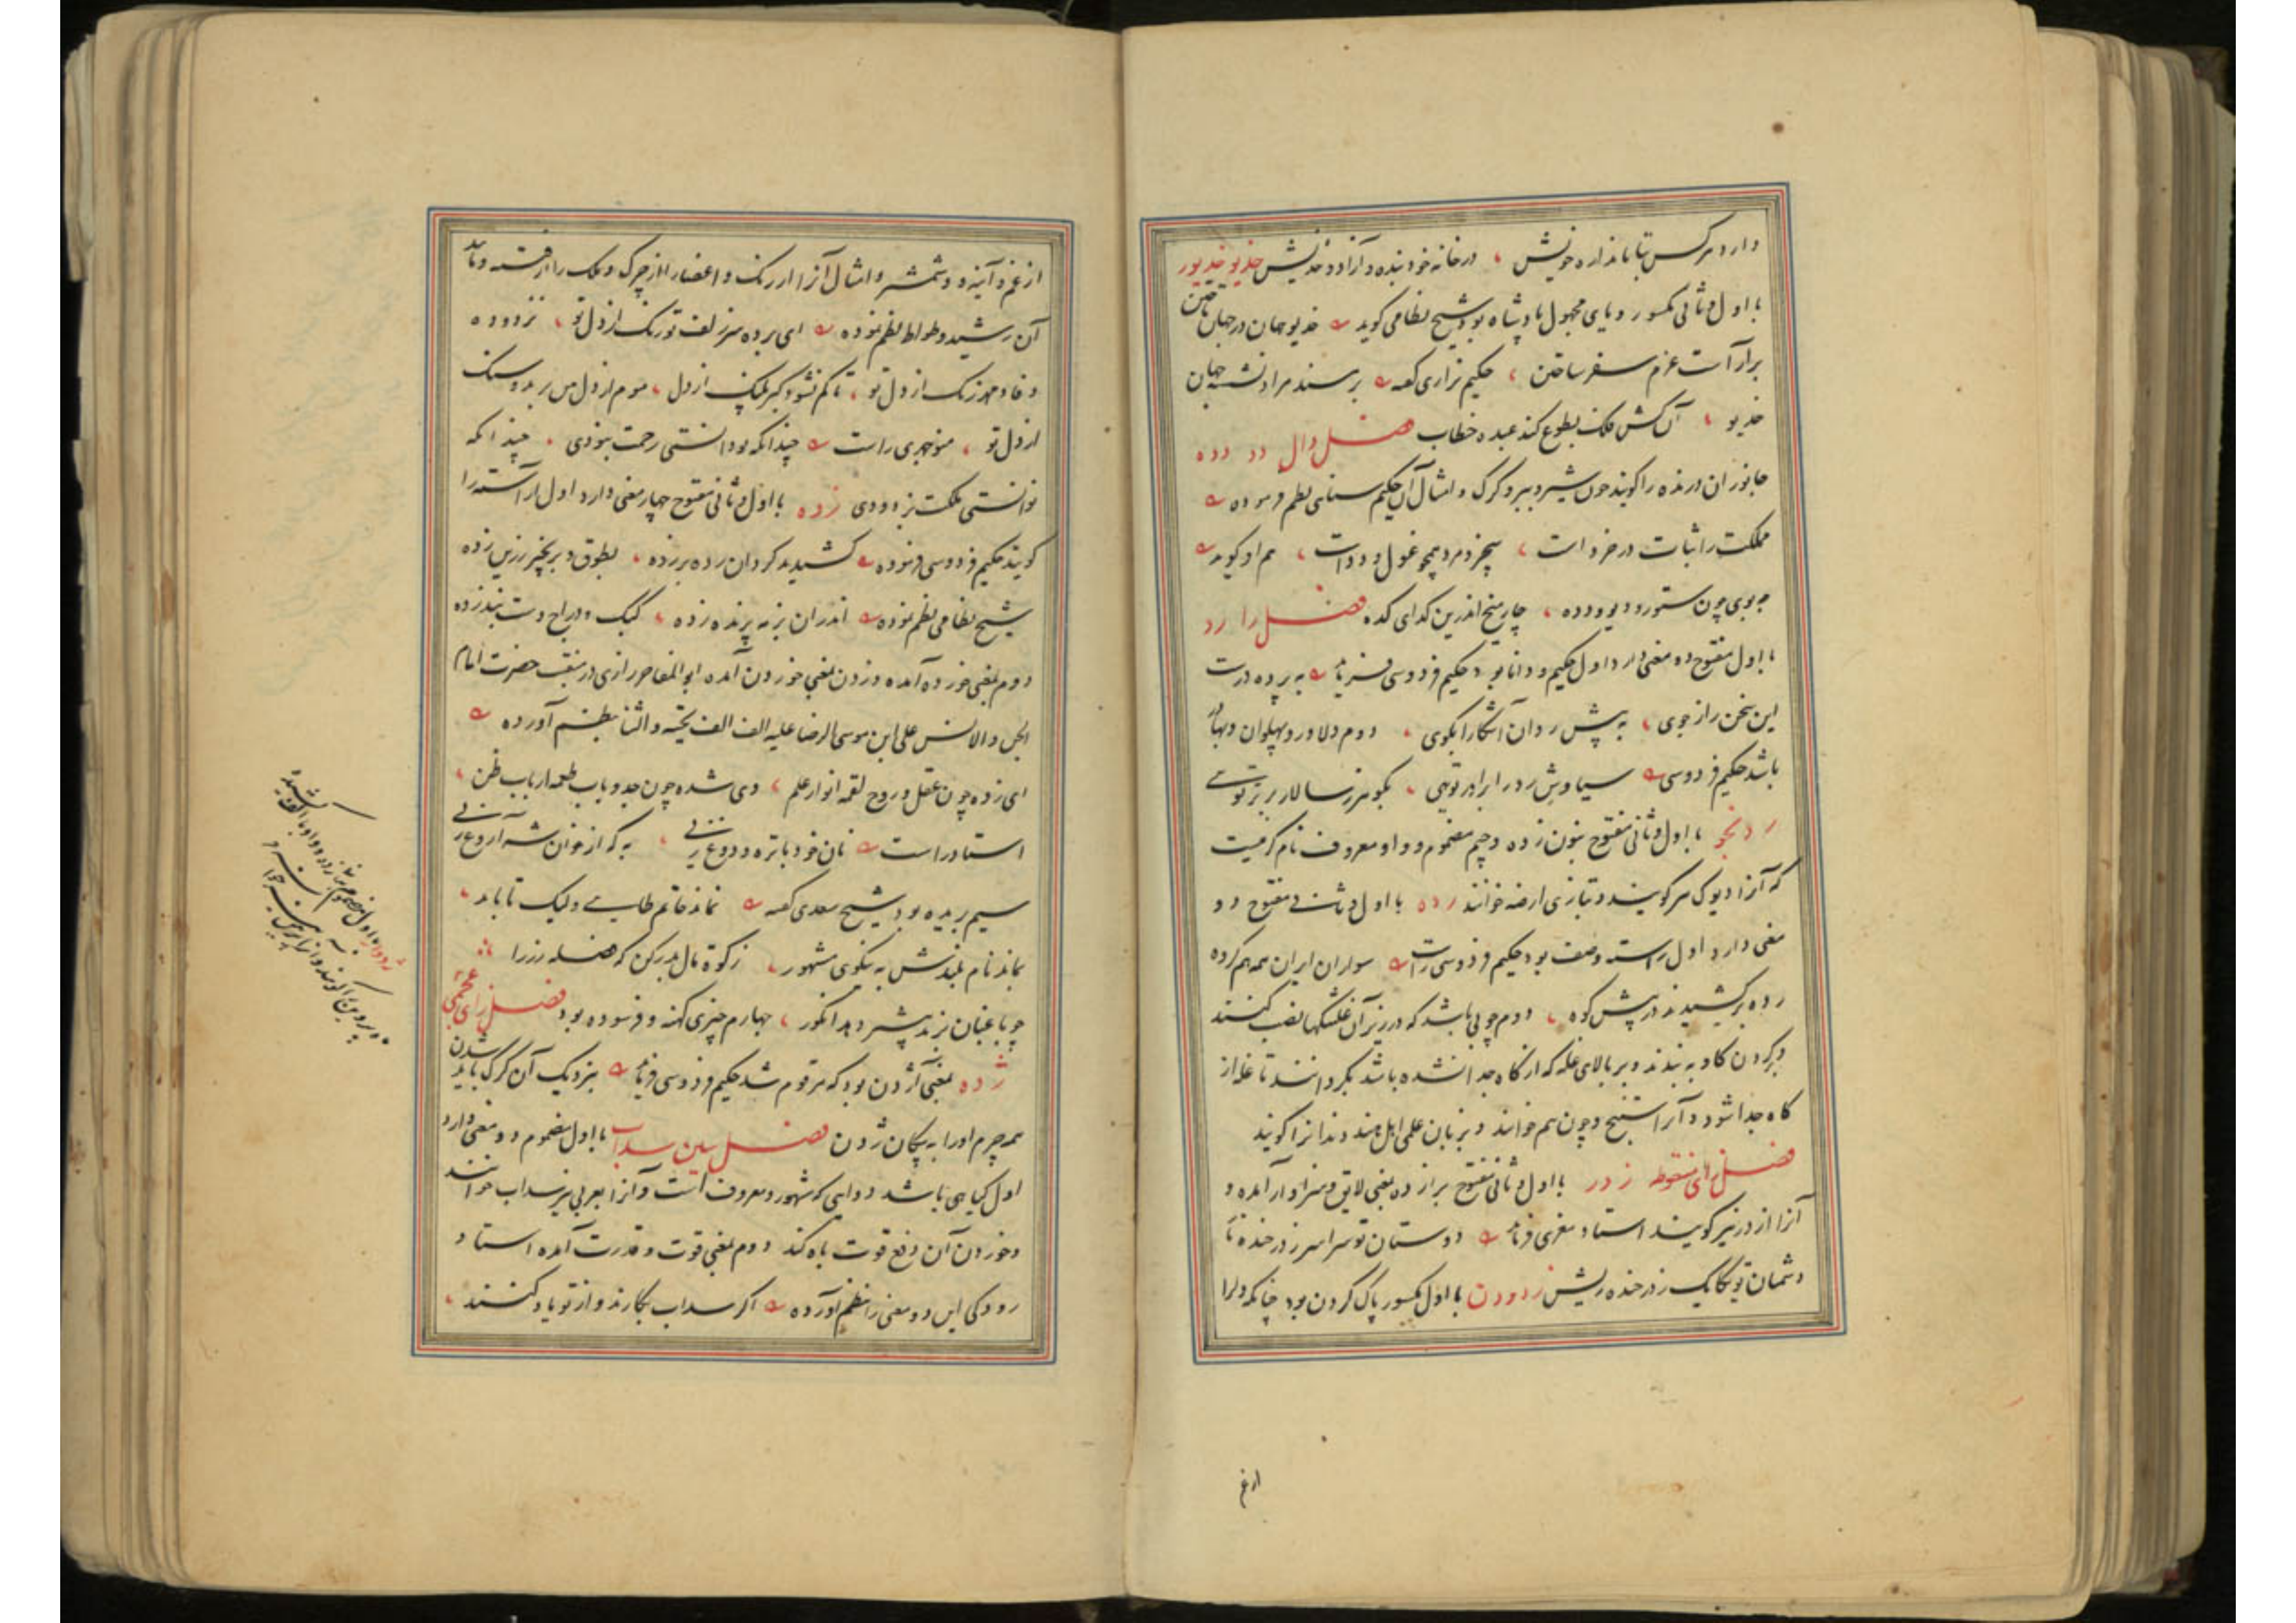 دارد هر کس تا باندازه خویش ، در خانه خود بنده و آزاد و خدیش خدیو خدیور
با اول و ثانی مکسور و یای مجهول پادشاه بود شیخ نظامی گوید خدیو جهان در جهان تاختن
برآراست عزم سفر ساختن ، حکیم نزاری گفته بر مسند مراد نشسته جهان
خدیو ، آن کش فلک بطوع کند عبده خطاب فصل دال دد دده
جانوران درنده را گویند چون شیر و ببر و گرگ و امثال آن حکیم سنائی نظم فرموده
مملکت را ثبات در خرد است ، بیخرد مرد همچو غول و دد است ، هم او گوید
چون ستور و دیو و دده ، چار میخ اندرین گدای کده فصل را رد
با اول مفتوح ده معنی دارد اول حکیم و دانا بود حکیم فردوسی فرماید به پرده درست
این سخن راز جوی ، به پیش ردان آشکارا بگوی ، دوم دلاور و پهلوان و بهادر
باشد حکیم فردوسی سیاوش رد را برادر تویی ، بگوهر ز سالار برتر تویی
ردنجو با اول و ثانی مفتوح بنون زده و جیم مضموم و واو معروف نام کرمیست
که آنرا دیوک هم گویند و بتازی ارضه خوانند رده با اول و ثانی مفتوح دو
معنی دارد اول رسته و صف بود حکیم فردوسی راست سواران ایران همه هم گروه
رده برکشیدند در پیش کوه ، دوم چوبی باشد که در زیر آن غلتکها نصب کنند
و بر گردن گاو به بندند و بر بالای غله که از کاه جدا نشده باشد بگردانند تا غله از
کاه جدا شود و آنرا و چون هم خوانند و بزبان علمی اهل هند آنرا گویند
فصل زای منقوطه زدر با اول و ثانی مفتوح برا زده بمعنی لایق و سزاوار آمده و
آنرا از در نیز گویند استاد معزی فرماید دوستان تو سراسر زدر خنده
دشمنان تو یکایک زدر خنده ریش زدودن با اول مکسور پاک کردن بود چنانکه دل را
از غم و آینه و شمشیر و امثال آنرا از زنگ و اعضا را از چرک و ملک را از فتنه و مانند
آن رشید وطواط نظم نموده ای برده سر زلف تو رنگ از دل تو ، نزدوده
وفا و مهر زنگ از دل تو ، تا کم نشود کبر پلنگ از دل ، موم از دل من برد و سنگ
از دل تو ، منوچهری راست چندانکه توانستی رحمت بنمودی ، چندانکه
توانستی ملکت بزدودی زده با اول و ثانی مفتوح چهار معنی دارد اول آراسته را
گویند حکیم فردوسی فرموده کشیدند گردان رده بر زده ، بطوق و بزنجیر زرین زده
شیخ نظامی نظم نموده اندران پرنده زده ، کبک و دراج دست بند زده
دوم بمعنی خورده آمده و زدن بمعنی خوردن آمده ابو المفاخر رازی در منقبت حضرت امام
الجن و الانس علی ابن موسی الرضا علیه الف الف تحیة و الثنا بنظم آورده
ای زده چون عقل و روح لقمه انوار علم ، وی شده چون جد و باب طعمه ارباب ظن ،
استاد راست نان خود با تره و دوغ زنی ، به که از خوان شه آروغ زنی
سیم بریده بود شیخ سعدی گفته نماند حاتم طائی ولیک تا بابد ،
بماند نام بلندش به نیکوی مشهور ، زکوة مال بدر کن که فضله رز را
چو باغبان بزند بیشتر دهد انگور ، چهارم چیزی کهنه و فرسوده بود فصل زای عجمی
ژده بمعنی آژدن بود که مرقوم شد حکیم فردوسی فرماید بنزدیک آن گرگ باید شدن
همه چرم او را به پیکان ژدن فصل سین سداب با اول مضموم دو معنی دارد
اول گیاهی باشد دوایی که مشهور و معروف است و آنرا بعربی نیز سداب خوانند
و خوردن آن دفع قوت باه کند دوم بمعنی قوت و قدرت آمده استاد
رودکی این دو معنی را بنظم آورده اگر سداب بکارند و از تو یاد کنند ،
از غم